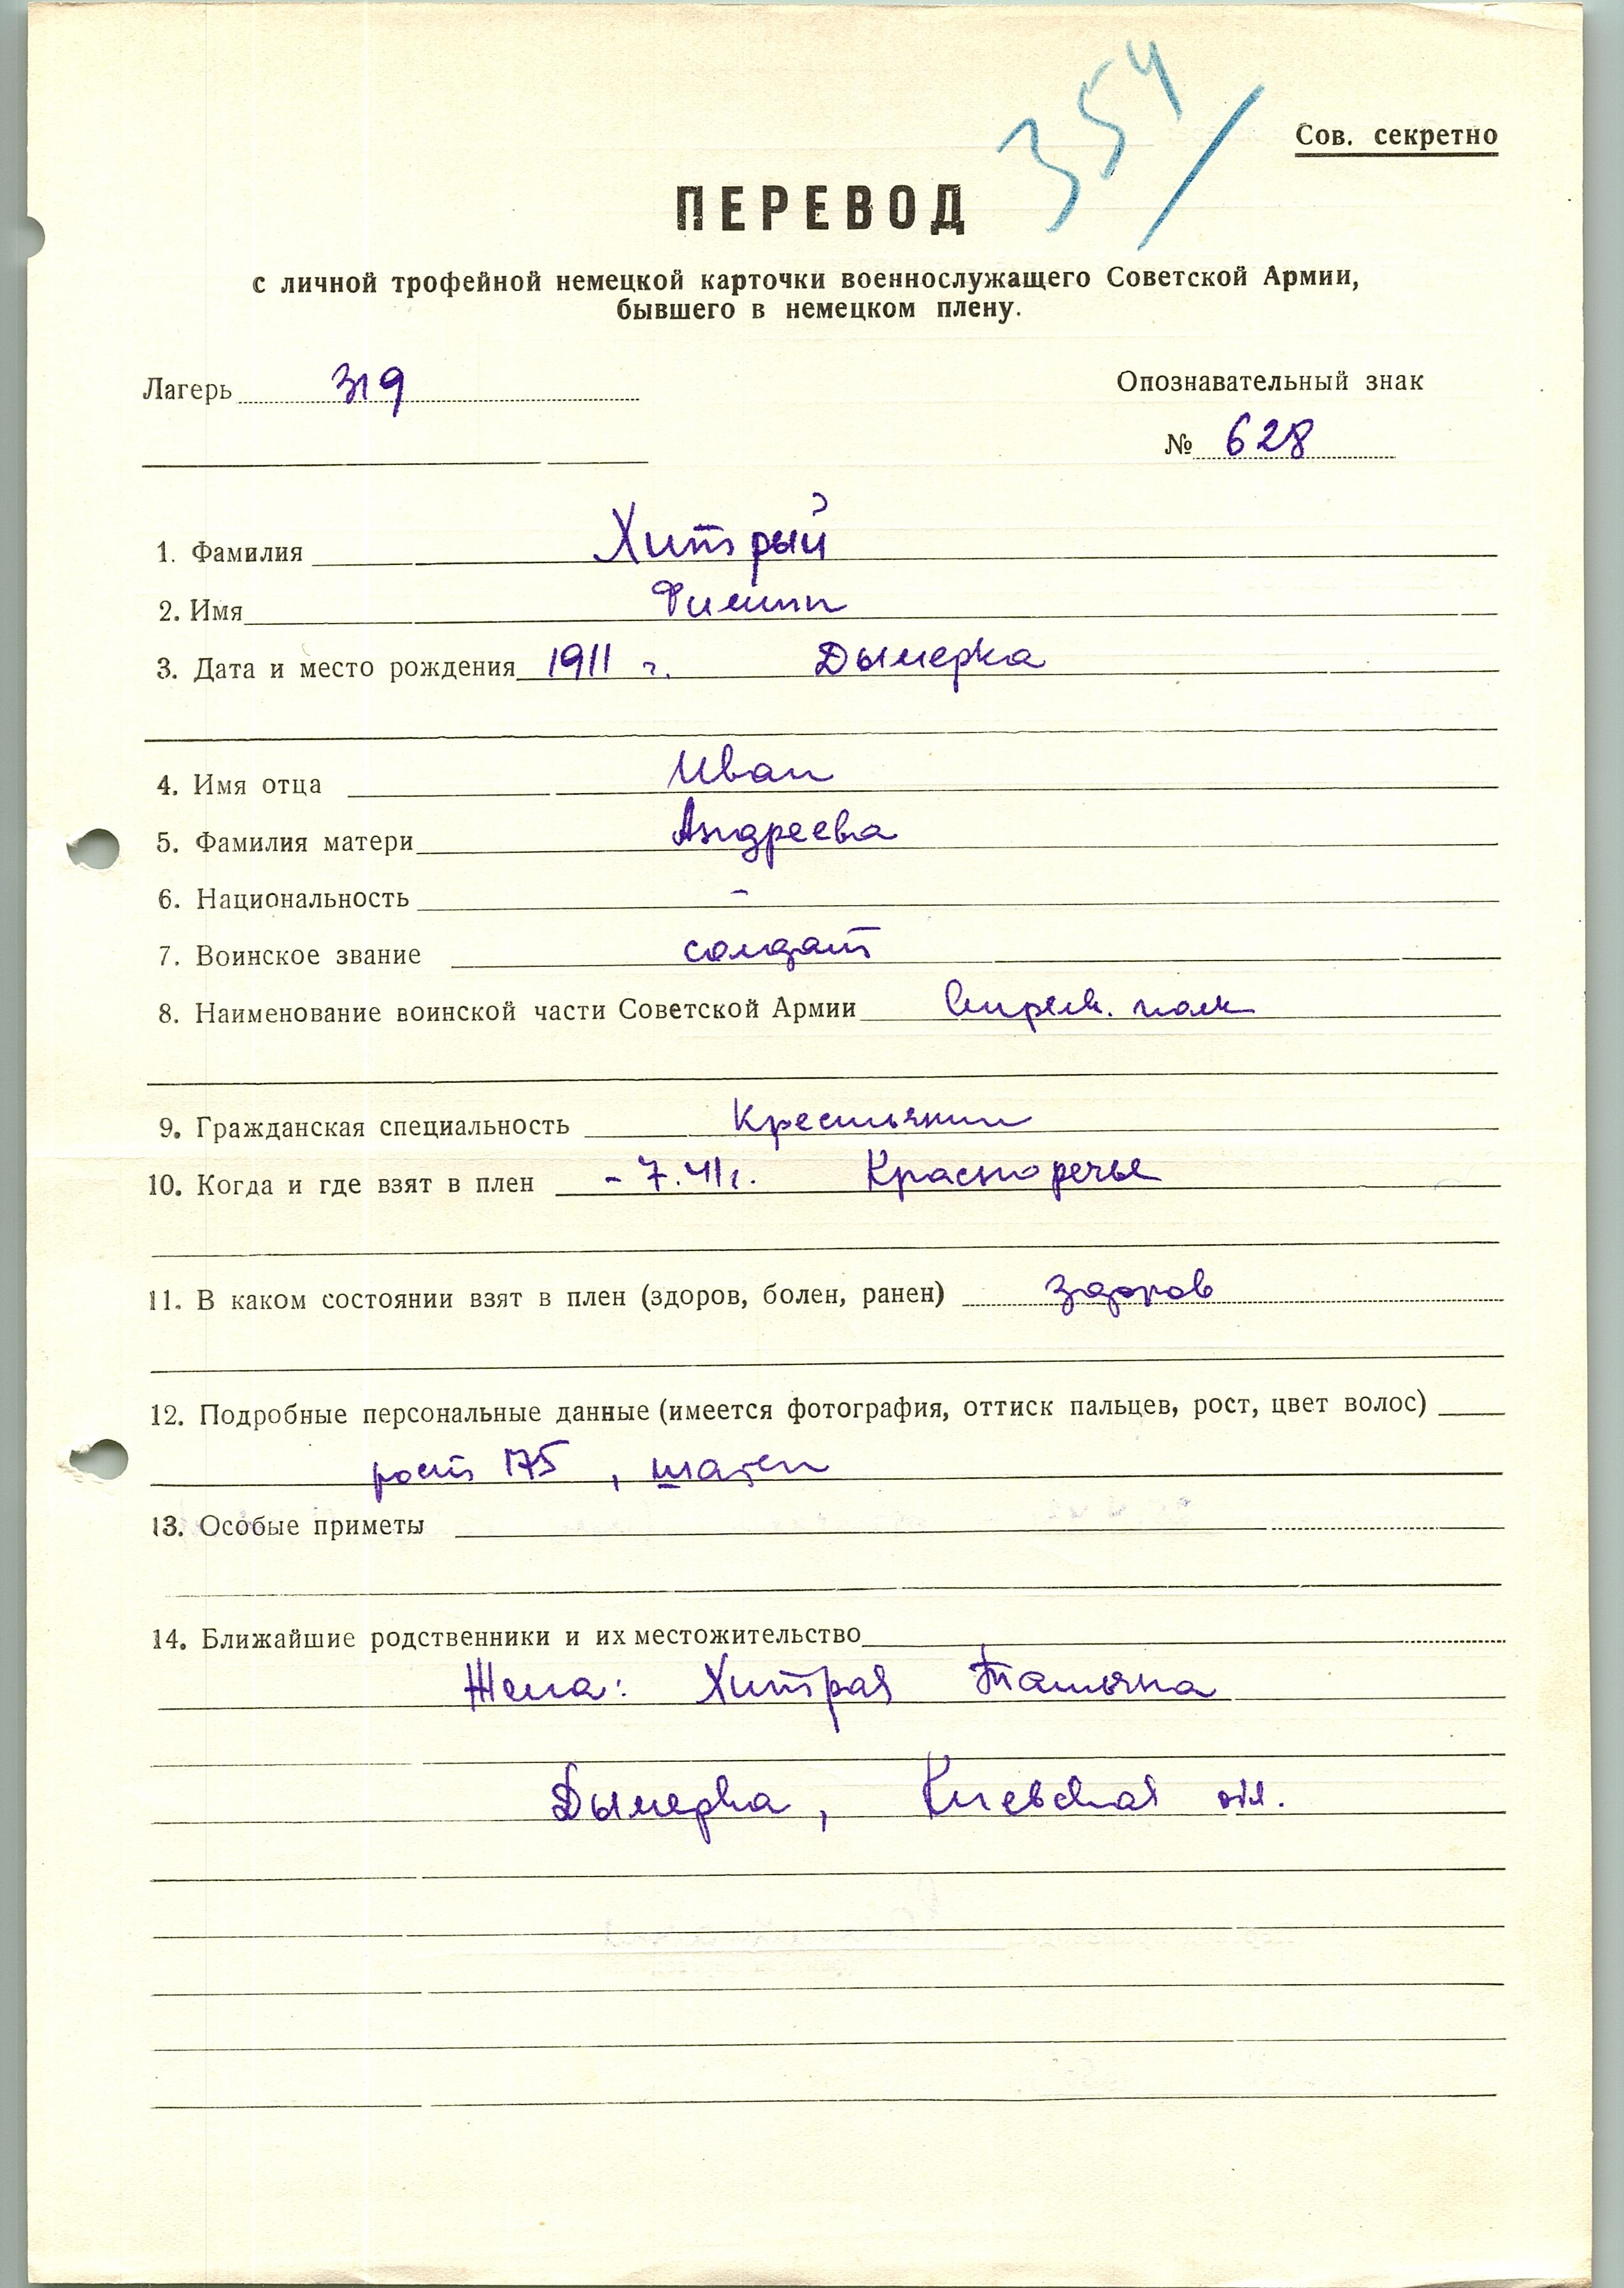 354/
Сов. секретно
ПЕРЕВОД
с личной трофейной немецкой карточки военнослужащего Советской Армии,
бывшего в немецком плену.
Лагерь 319
Опознавательный знак
№ 628
1. Фамилия Хитрый
2. Имя Филипп
3. Дата и место рождения 1911 г. Дымерка
4. Имя отца Иван
5. Фамилия матери Андреева
6. Национальность -
7. Воинское звание солдат
8. Наименование воинской части Советской Армии Стрелк. полк
9. Гражданская специальность Крестьянин
10. Когда и где взят в плен - 7.41г. Красноречье
11. В каком состоянии взят в плен (здоров, болен, ранен) здоров
12. Подробные персональные данные (имеется фотография, оттиск пальцев, рост, цвет волос)
рост 175, шатен
13. Особые приметы
14. Ближайшие родственники и их местожительство
Жена: Хитрая Татьяна
Дымерка, Киевская обл.